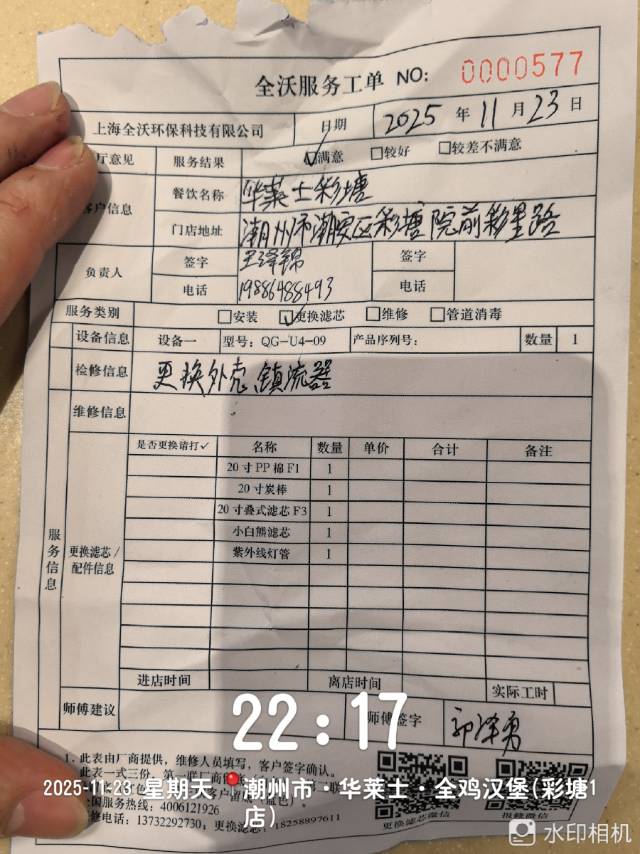 全沃服务工单 NO: 0000577
上海全沃环保科技有限公司 日期 2025 年 11 月 23 日
厅意见 服务结果 ☑满意 □较好 □较差不满意
客户信息 餐饮名称 华莱士彩塘
门店地址 潮州市潮安区彩塘院前彩星路
负责人 签字 王泽锦 签字
电话 19886488493 电话
服务类别 □安装 ☑更换滤芯 □维修 □管道消毒
设备信息 设备一 型号: QG-U4-09 产品序列号: 数量 1
检修信息 更换外壳 镇流器
维修信息
服务信息
更换滤芯/配件信息
是否更换请打✓ 名称 数量 单价 合计 备注
20寸PP棉F1 1
20寸炭棒 1
20寸叠式滤芯F3 1
小白熊滤芯 1
紫外线灯管 1
进店时间 离店时间 实际工时
师傅建议 师傅签字 郭泽勇
22:17
1. 此表由厂商提供，维修人员填写，客户签字确认。
此表一式三份，第一联厂商
2025-11-23 星期天 潮州市·华莱士·全鸡汉堡(彩塘1店)
全国服务热线: 4006121926
修电话: 13732292730; 更换滤芯: 18258897611
更换滤芯微信 报修微信
水印相机